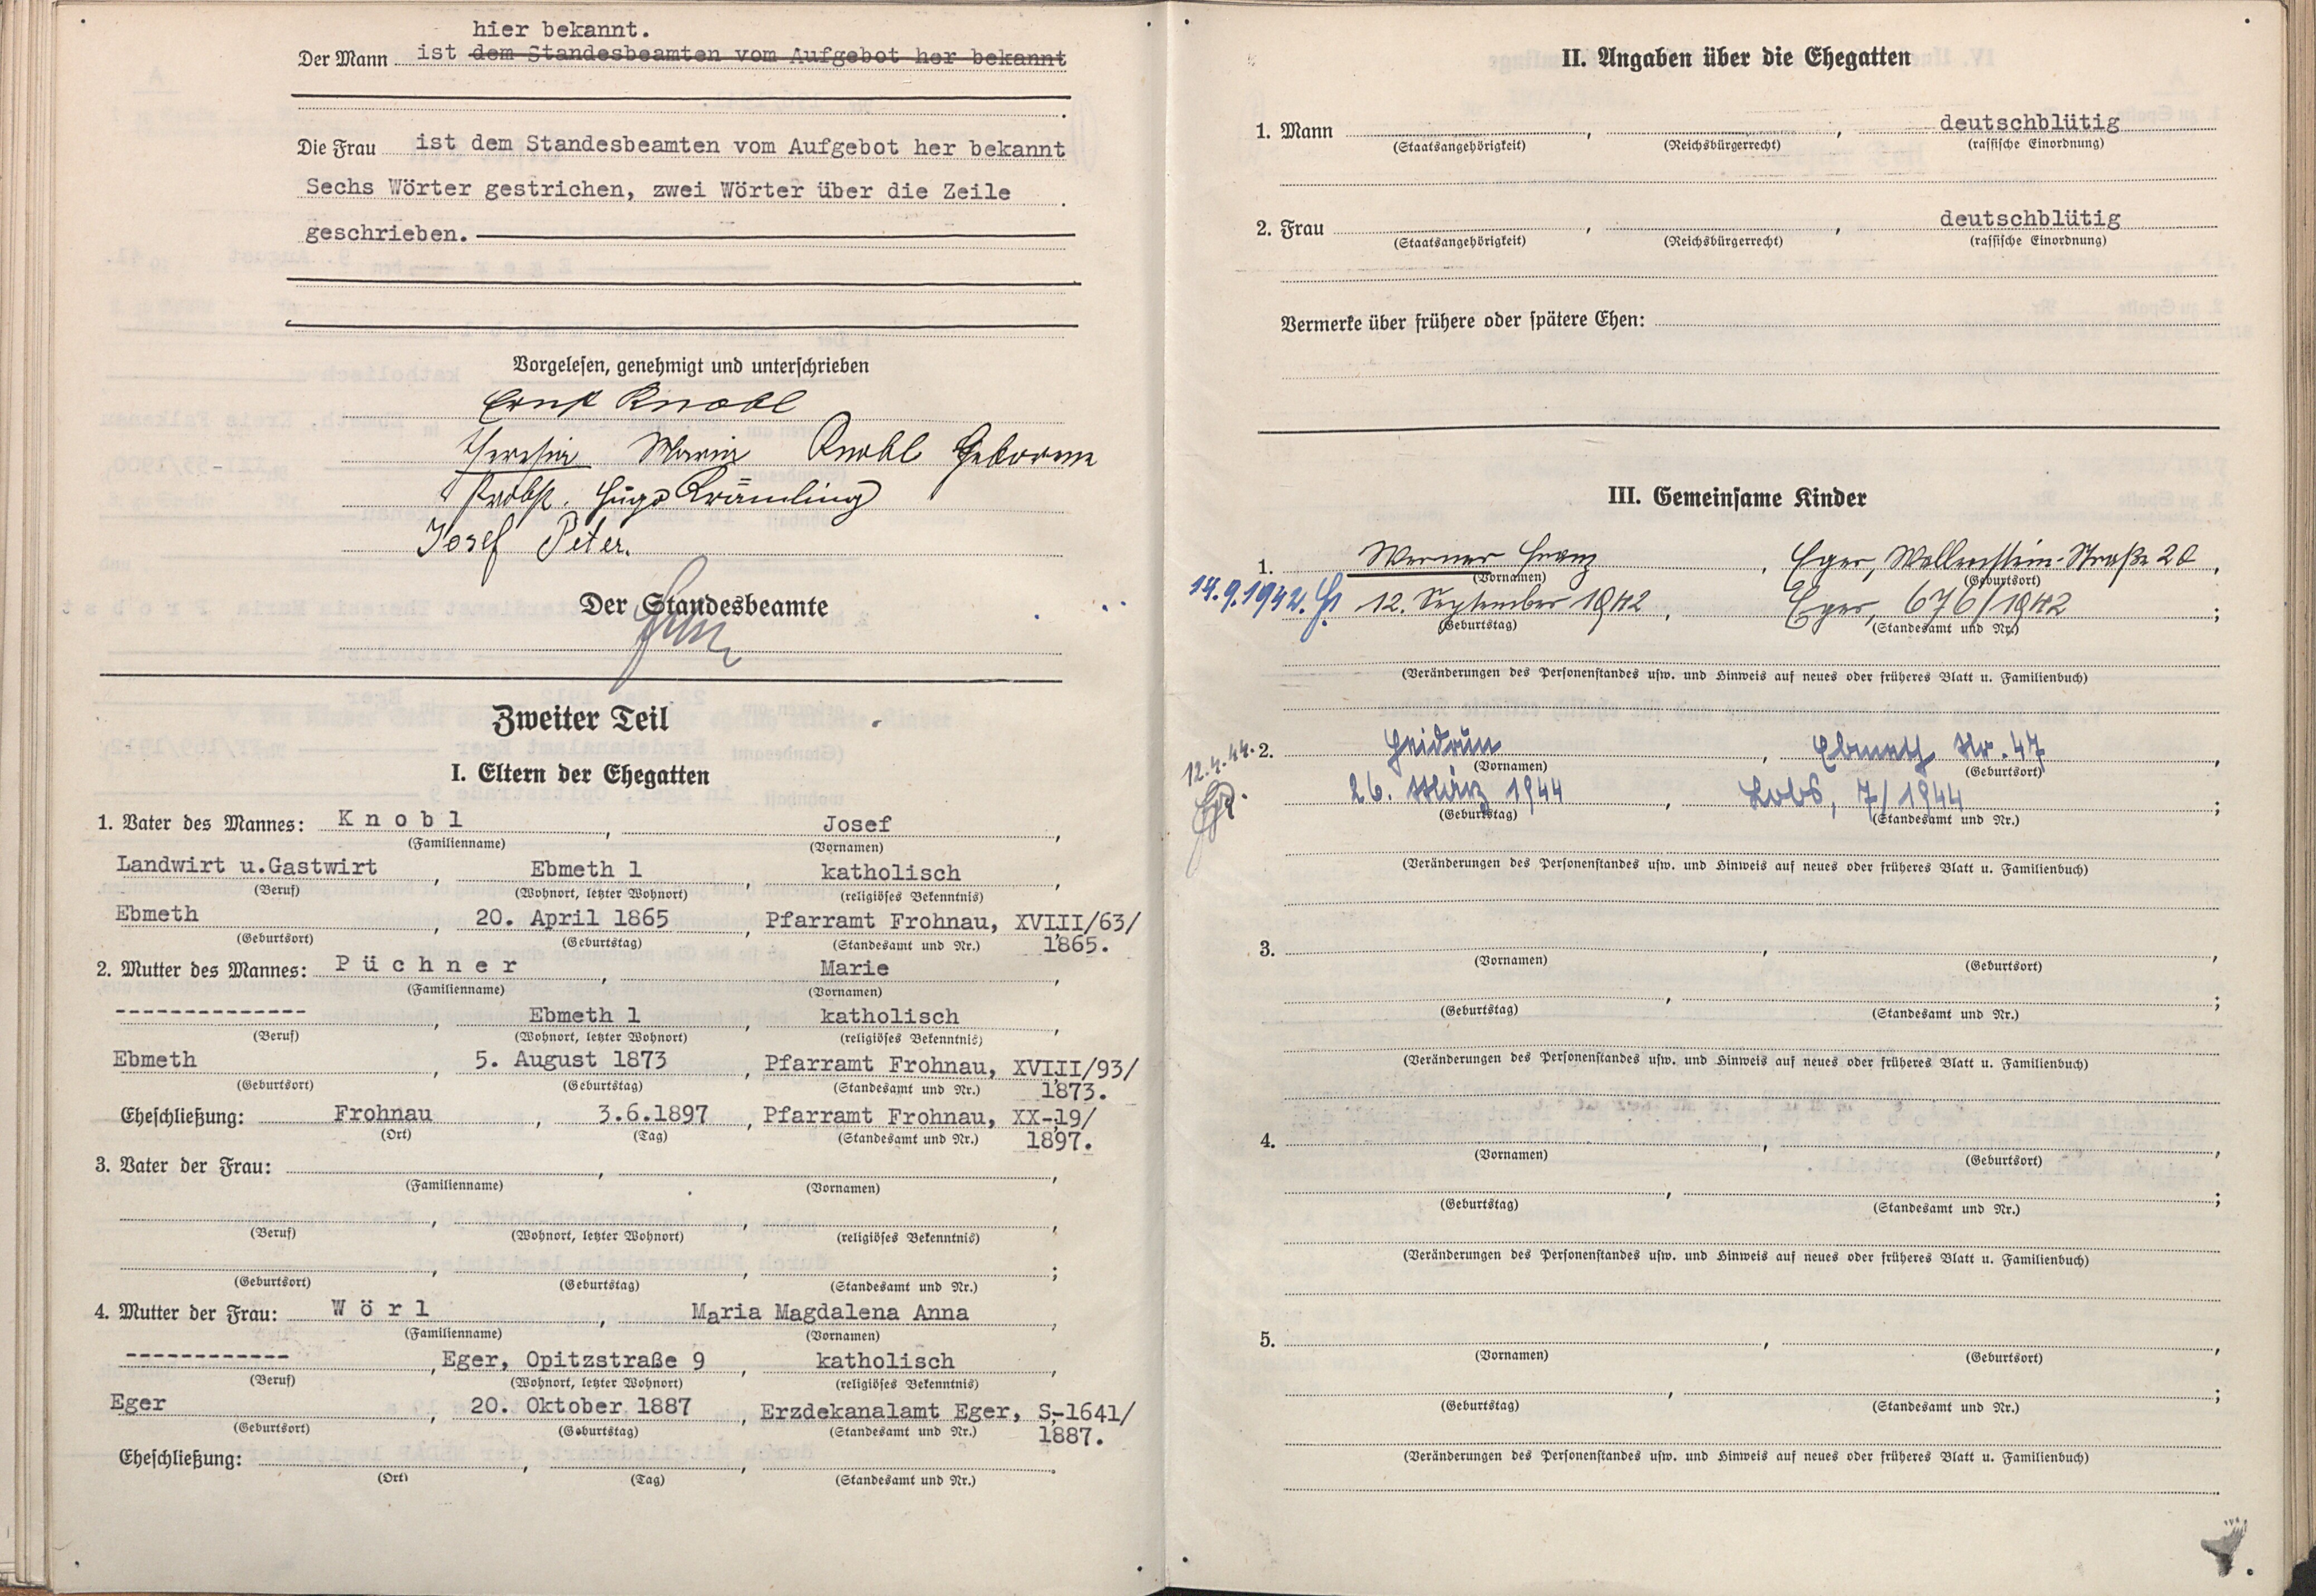 hier bekannt.
Der Mann ist dem Standesbeamten vom Aufgebot her bekannt
.
Die Frau ist dem Standesbeamten vom Aufgebot her bekannt
Sechs Wörter gestrichen, zwei Wörter über die Zeile .
geschrieben.
Vorgelesen, genehmigt und unterschrieben
Ernst Knobl
Theresia Maria Knobl geborene
Probst. Hugo Krämling
Josef Peter.
Der Standesbeamte
Zweiter Teil
I. Eltern der Ehegatten
1. Vater des Mannes: Knobl, Josef,
(Familienname) (Vornamen)
Landwirt u.Gastwirt, Ebmeth 1, katholisch,
(Beruf) (Wohnort, letzter Wohnort) (religiöses Bekenntnis)
Ebmeth, 20. April 1865, Pfarramt Frohnau, XVIII/63/
(Geburtsort) (Geburtstag) (Standesamt und Nr.) 1865.
2. Mutter des Mannes: Püchner, Marie,
(Familienname) (Vornamen)
--------------, Ebmeth 1, katholisch,
(Beruf) (Wohnort, letzter Wohnort) (religiöses Bekenntnis)
Ebmeth, 5. August 1873, Pfarramt Frohnau, XVIII/93/
(Geburtsort) (Geburtstag) (Standesamt und Nr.) 1873.
Eheschließung: Frohnau, 3.6.1897, Pfarramt Frohnau, XX-19/
(Ort) (Tag) (Standesamt und Nr.) 1897.
3. Vater der Frau: , ,
(Familienname) (Vornamen)
, , ,
(Beruf) (Wohnort, letzter Wohnort) (religiöses Bekenntnis)
, , ;
(Geburtsort) (Geburtstag) (Standesamt und Nr.)
4. Mutter der Frau: Wörl, Maria Magdalena Anna,
(Familienname) (Vornamen)
------------, Eger, Opitzstraße 9, katholisch,
(Beruf) (Wohnort, letzter Wohnort) (religiöses Bekenntnis)
Eger, 20. Oktober 1887, Erzdekanalamt Eger, S-1641/
(Geburtsort) (Geburtstag) (Standesamt und Nr.) 1887.
Eheschließung: , , .
(Ort) (Tag) (Standesamt und Nr.)
II. Angaben über die Ehegatten
1. Mann , , deutschblütig
(Staatsangehörigkeit) (Reichsbürgerrecht) (rassische Einordnung)
2. Frau , , deutschblütig
(Staatsangehörigkeit) (Reichsbürgerrecht) (rassische Einordnung)
Vermerke über frühere oder spätere Ehen:
III. Gemeinsame Kinder
1. Werner Franz, Eger, Wallenstein-Straße 20,
(Vornamen) (Geburtsort)
14.9.1942. 12. September 1942, Eger, 676/1942;
(Geburtstag) (Standesamt und Nr.)
(Veränderungen des Personenstandes usw. und Hinweis auf neues oder früheres Blatt u. Familienbuch)
12.4.44. 2. Heidrun, Ebmeth Nr. 47,
(Vornamen) (Geburtsort)
26. März 1944, Lobs, 7/1944;
(Geburtstag) (Standesamt und Nr.)
(Veränderungen des Personenstandes usw. und Hinweis auf neues oder früheres Blatt u. Familienbuch)
3. , ,
(Vornamen) (Geburtsort)
, ;
(Geburtstag) (Standesamt und Nr.)
(Veränderungen des Personenstandes usw. und Hinweis auf neues oder früheres Blatt u. Familienbuch)
4. , ,
(Vornamen) (Geburtsort)
, ;
(Geburtstag) (Standesamt und Nr.)
(Veränderungen des Personenstandes usw. und Hinweis auf neues oder früheres Blatt u. Familienbuch)
5. , ,
(Vornamen) (Geburtsort)
, ;
(Geburtstag) (Standesamt und Nr.)
(Veränderungen des Personenstandes usw. und Hinweis auf neues oder früheres Blatt u. Familienbuch)